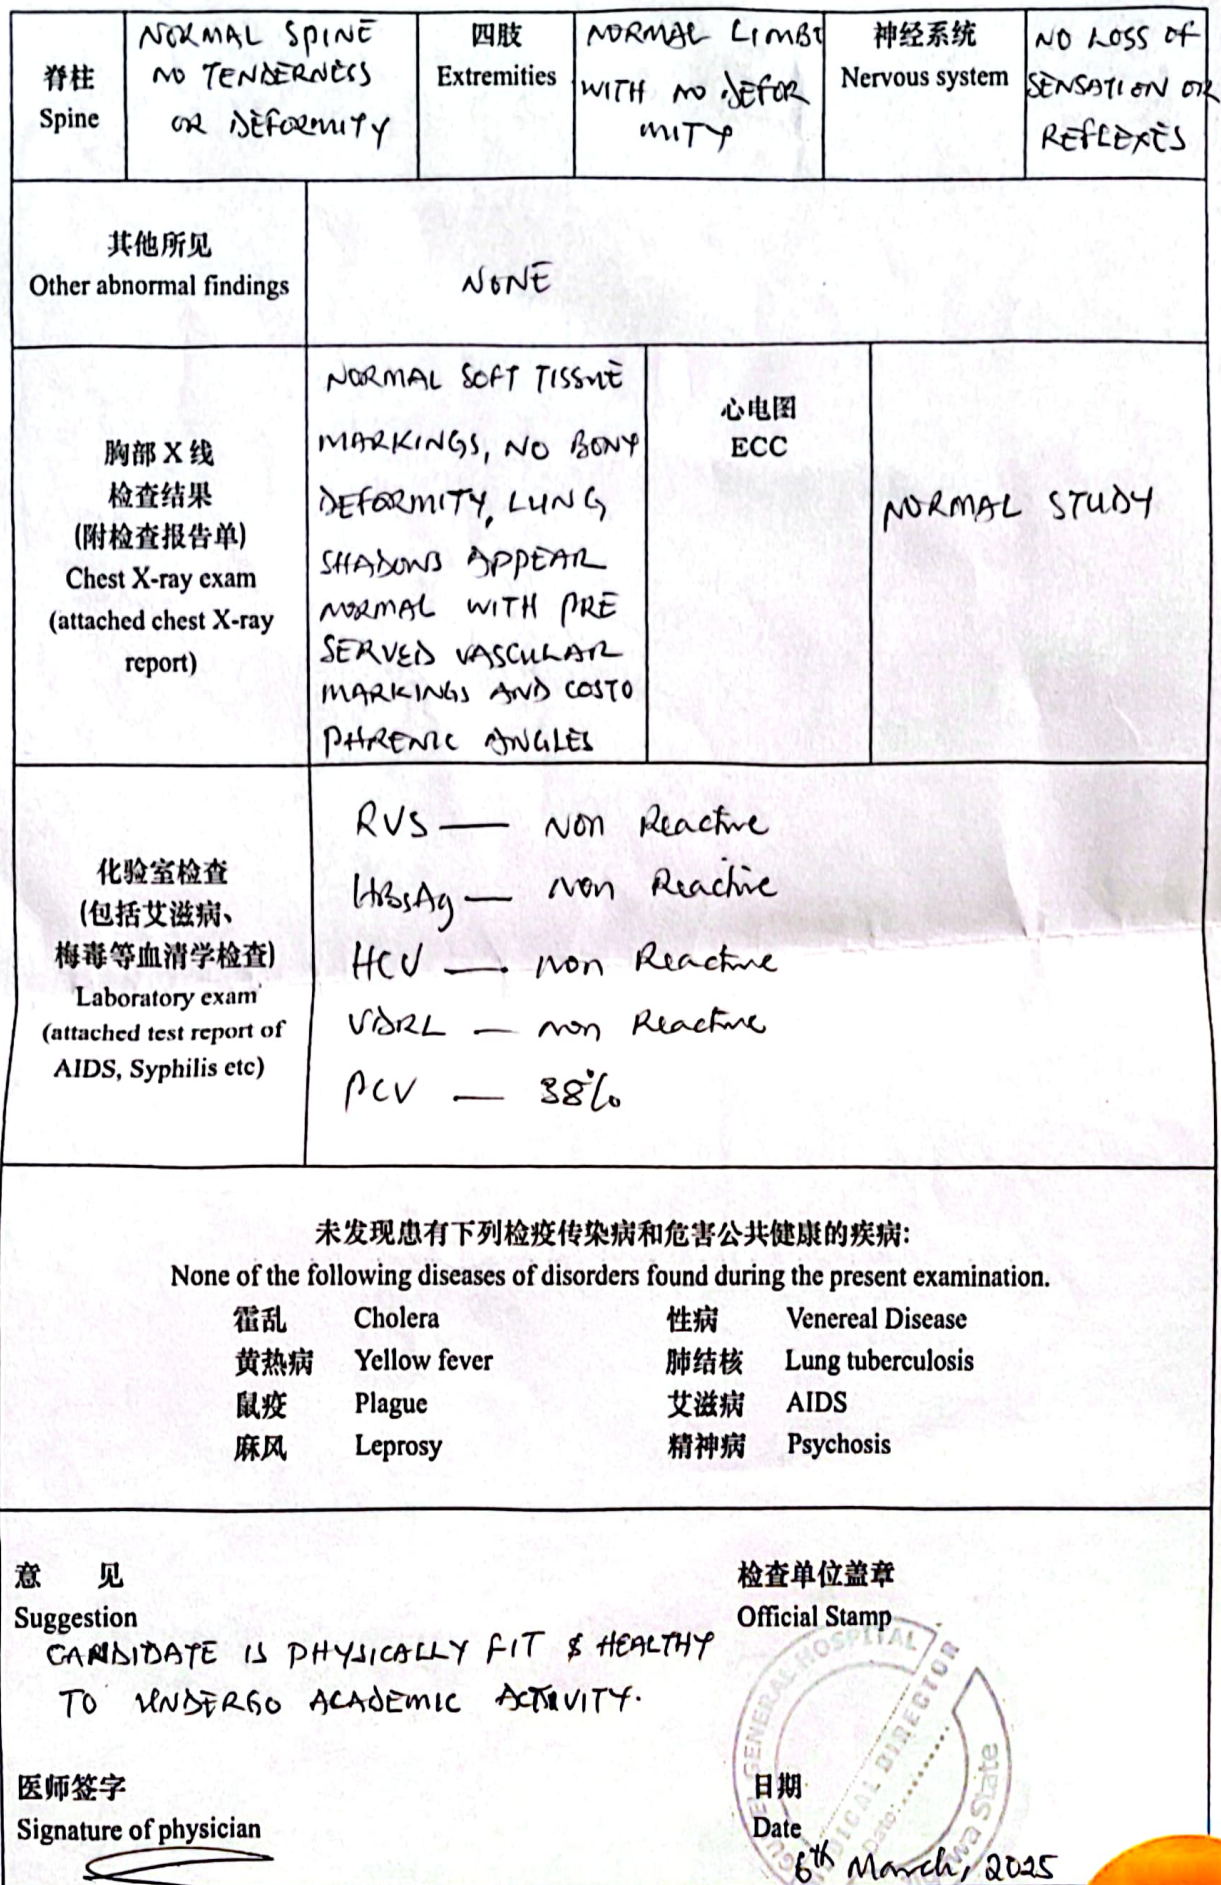 脊柱
Spine
NORMAL SPINE
NO TENDERNESS
OR DEFORMITY
四肢
Extremities
NORMAL LIMBS
WITH NO DEFOR
MITY
神经系统
Nervous system
NO LOSS OF
SENSATION OR
REFLEXES
其他所见
Other abnormal findings
NONE
胸部 X 线
检查结果
(附检查报告单)
Chest X-ray exam
(attached chest X-ray
report)
NORMAL SOFT TISSUE
MARKINGS, NO BONY
DEFORMITY, LUNG
SHADOWS APPEAR
NORMAL WITH PRE
SERVED VASCULAR
MARKINGS AND COSTO
PHRENIC ANGLES
心电图
ECC
NORMAL STUDY
化验室检查
(包括艾滋病、
梅毒等血清学检查)
Laboratory exam
(attached test report of
AIDS, Syphilis etc)
RVS — Non Reactive
HBsAg — Non Reactive
HCV — Non Reactive
VDRL — Non Reactive
PCV — 38%
未发现患有下列检疫传染病和危害公共健康的疾病:
None of the following diseases of disorders found during the present examination.
霍乱 Cholera 性病 Venereal Disease
黄热病 Yellow fever 肺结核 Lung tuberculosis
鼠疫 Plague 艾滋病 AIDS
麻风 Leprosy 精神病 Psychosis
意 见
Suggestion
CANDIDATE IS PHYSICALLY FIT & HEALTHY
TO UNDERGO ACADEMIC ACTIVITY.
检查单位盖章
Official Stamp
GENERAL HOSPITAL
MEDICAL DIRECTOR
Date:
State
医师签字
Signature of physician
日期
Date
6th March, 2025